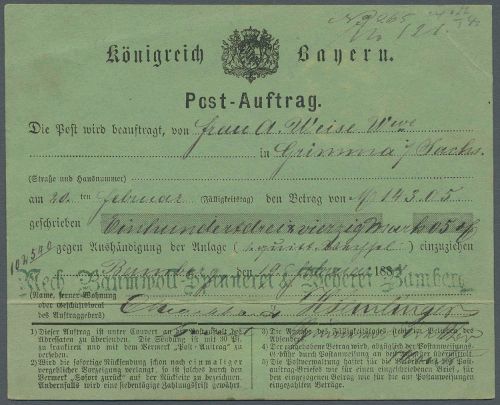 Königreich Bayern.
Post-Auftrag.
Die Post wird beauftragt, von Frau A. Weise Wwe
in Grimma i/ Sachs.
(Straße und Hausnummer)
am 20ten Februar (Fälligkeitstag) den Betrag von M 143.05
geschrieben Einhundertdreiundvierzig Mark 05 Pf
gegen Aushändigung der Anlage ( ) einzuziehen
Mech. Baumwoll-Spinnerei & Weberei Bamberg
Bamberg, den Februar
(Name, ferner Wohnung
oder Geschäftslocal
des Auftraggebers)
1) Dieser Auftrag ist unter Couvert an die Postanstalt des
Adressaten zu übersenden. Die Sendung ist mit 30 Pf.
zu frankiren und mit dem Vermerk „Post-Auftrag" zu
versehen.
2) Wird die sofortige Rücksendung schon nach einmaliger
vergeblicher Vorzeigung verlangt, so ist solches durch den
Vermerk „Sofort zurück" auf der Rückseite zu bezeichnen.
Andernfalls wird eine siebentägige Zahlungsfrist gewährt.
3) Die des Fälligkeitstages Belieben des
Absenders
4) Der eingezogene Betrag wird, abzüglich der Postanweisungs-
Gebühr durch Postanweisung
5) Die Postverwaltung haftet für die Beförderung des
Auftrags wie für einen eingeschriebenen Brief, für
den eingezogenen Betrag wie für die auf Postanweisungen
eingezahlten Beträge.